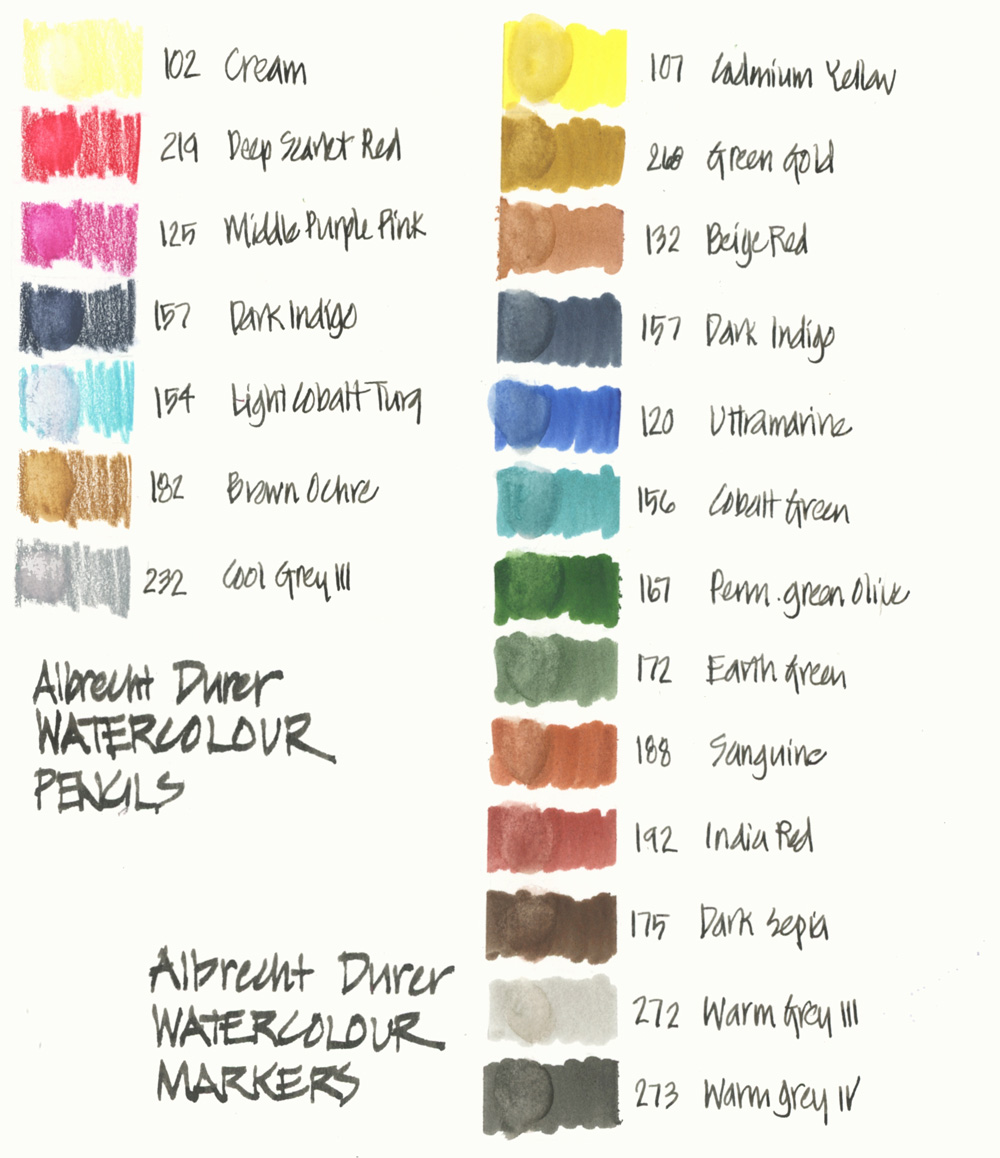 102 Cream
219 Deep Scarlet Red
125 Middle Purple Pink
157 Dark Indigo
154 Light Cobalt Turq
182 Brown Ochre
232 Cool Grey III
Albrecht Durer
WATERCOLOUR
PENCILS
107 Cadmium Yellow
268 Green Gold
132 Beige Red
157 Dark Indigo
120 Ultramarine
156 Cobalt Green
167 Perm. green Olive
172 Earth Green
188 Sanguine
192 India Red
175 Dark Sepia
272 Warm Grey III
273 Warm grey IV
Albrecht Durer
WATERCOLOUR
MARKERS